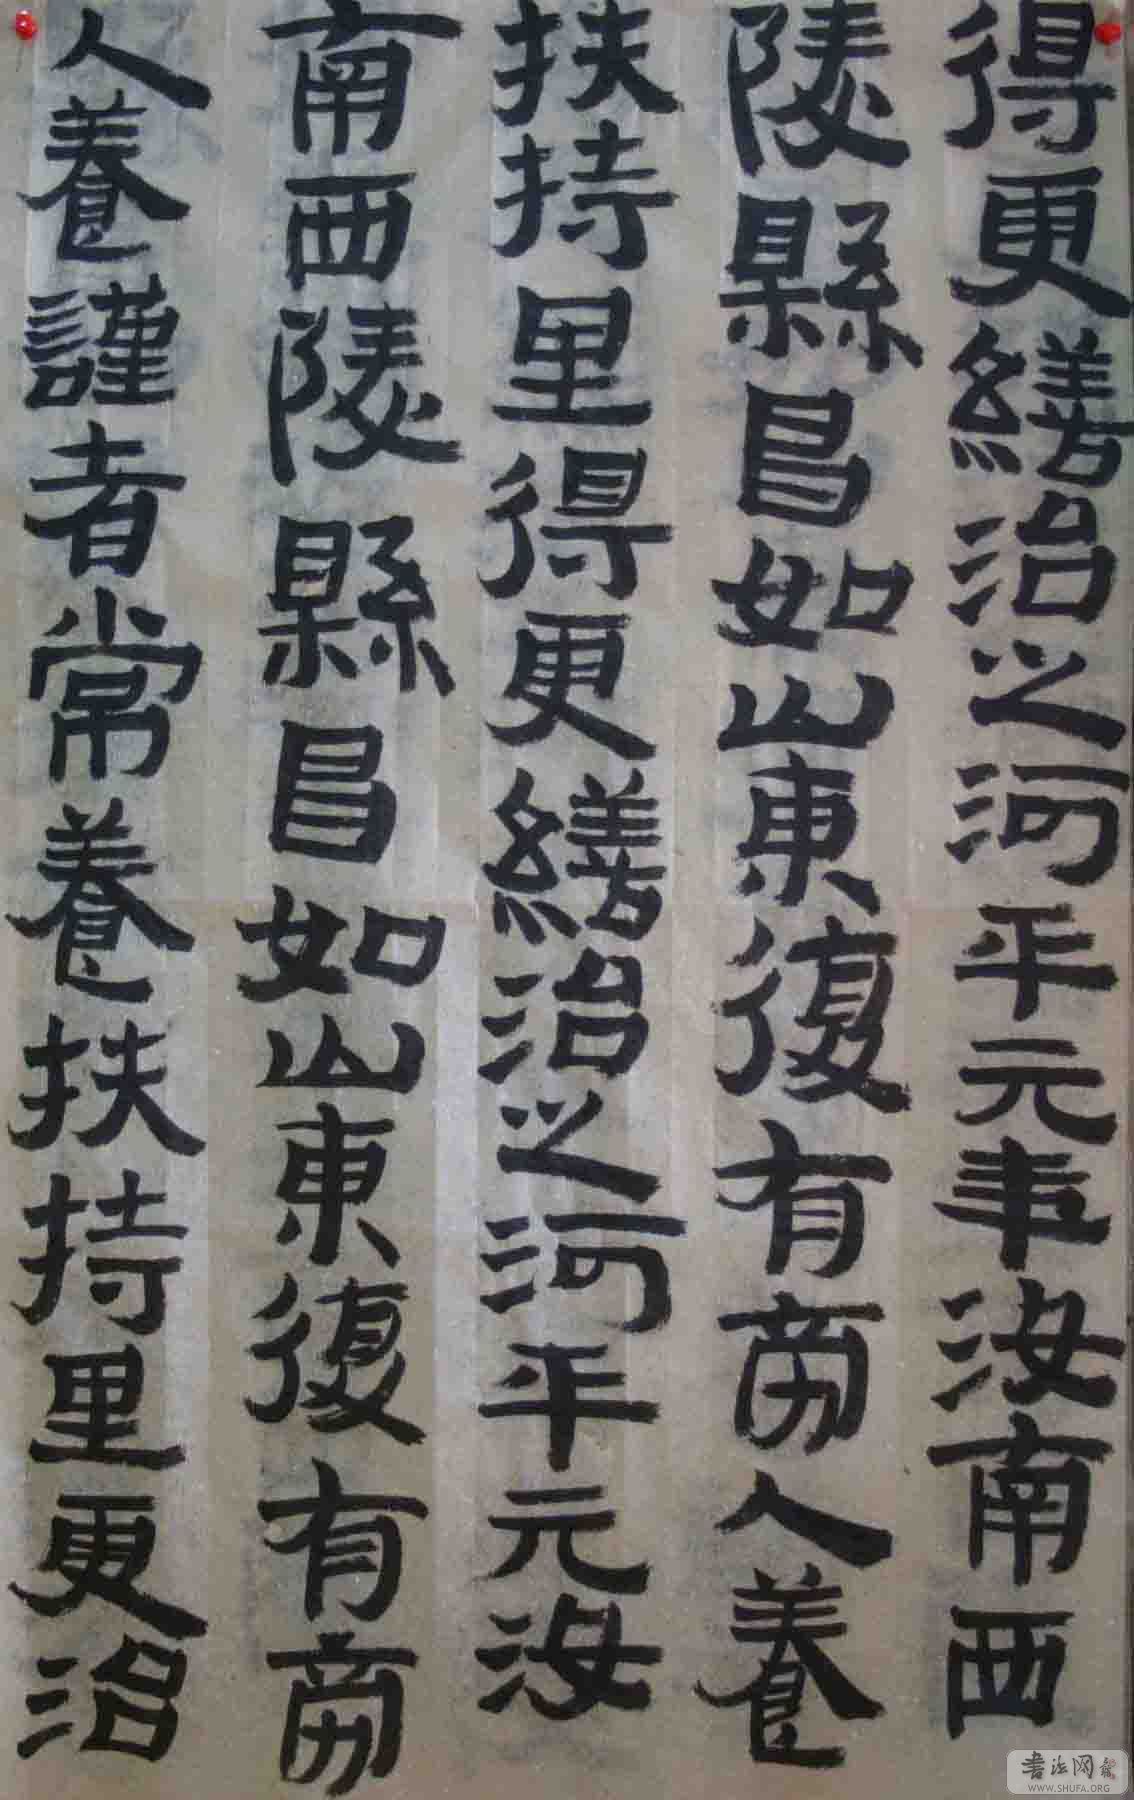 得更繕治之河平元年汝南西
陵縣昌如山東復有旁人養
扶持里得更繕治之河平元汝
南西陵縣昌如山東復有旁
人養謹者常養扶持里更治
書法网
WWW.SHUFA.ORG